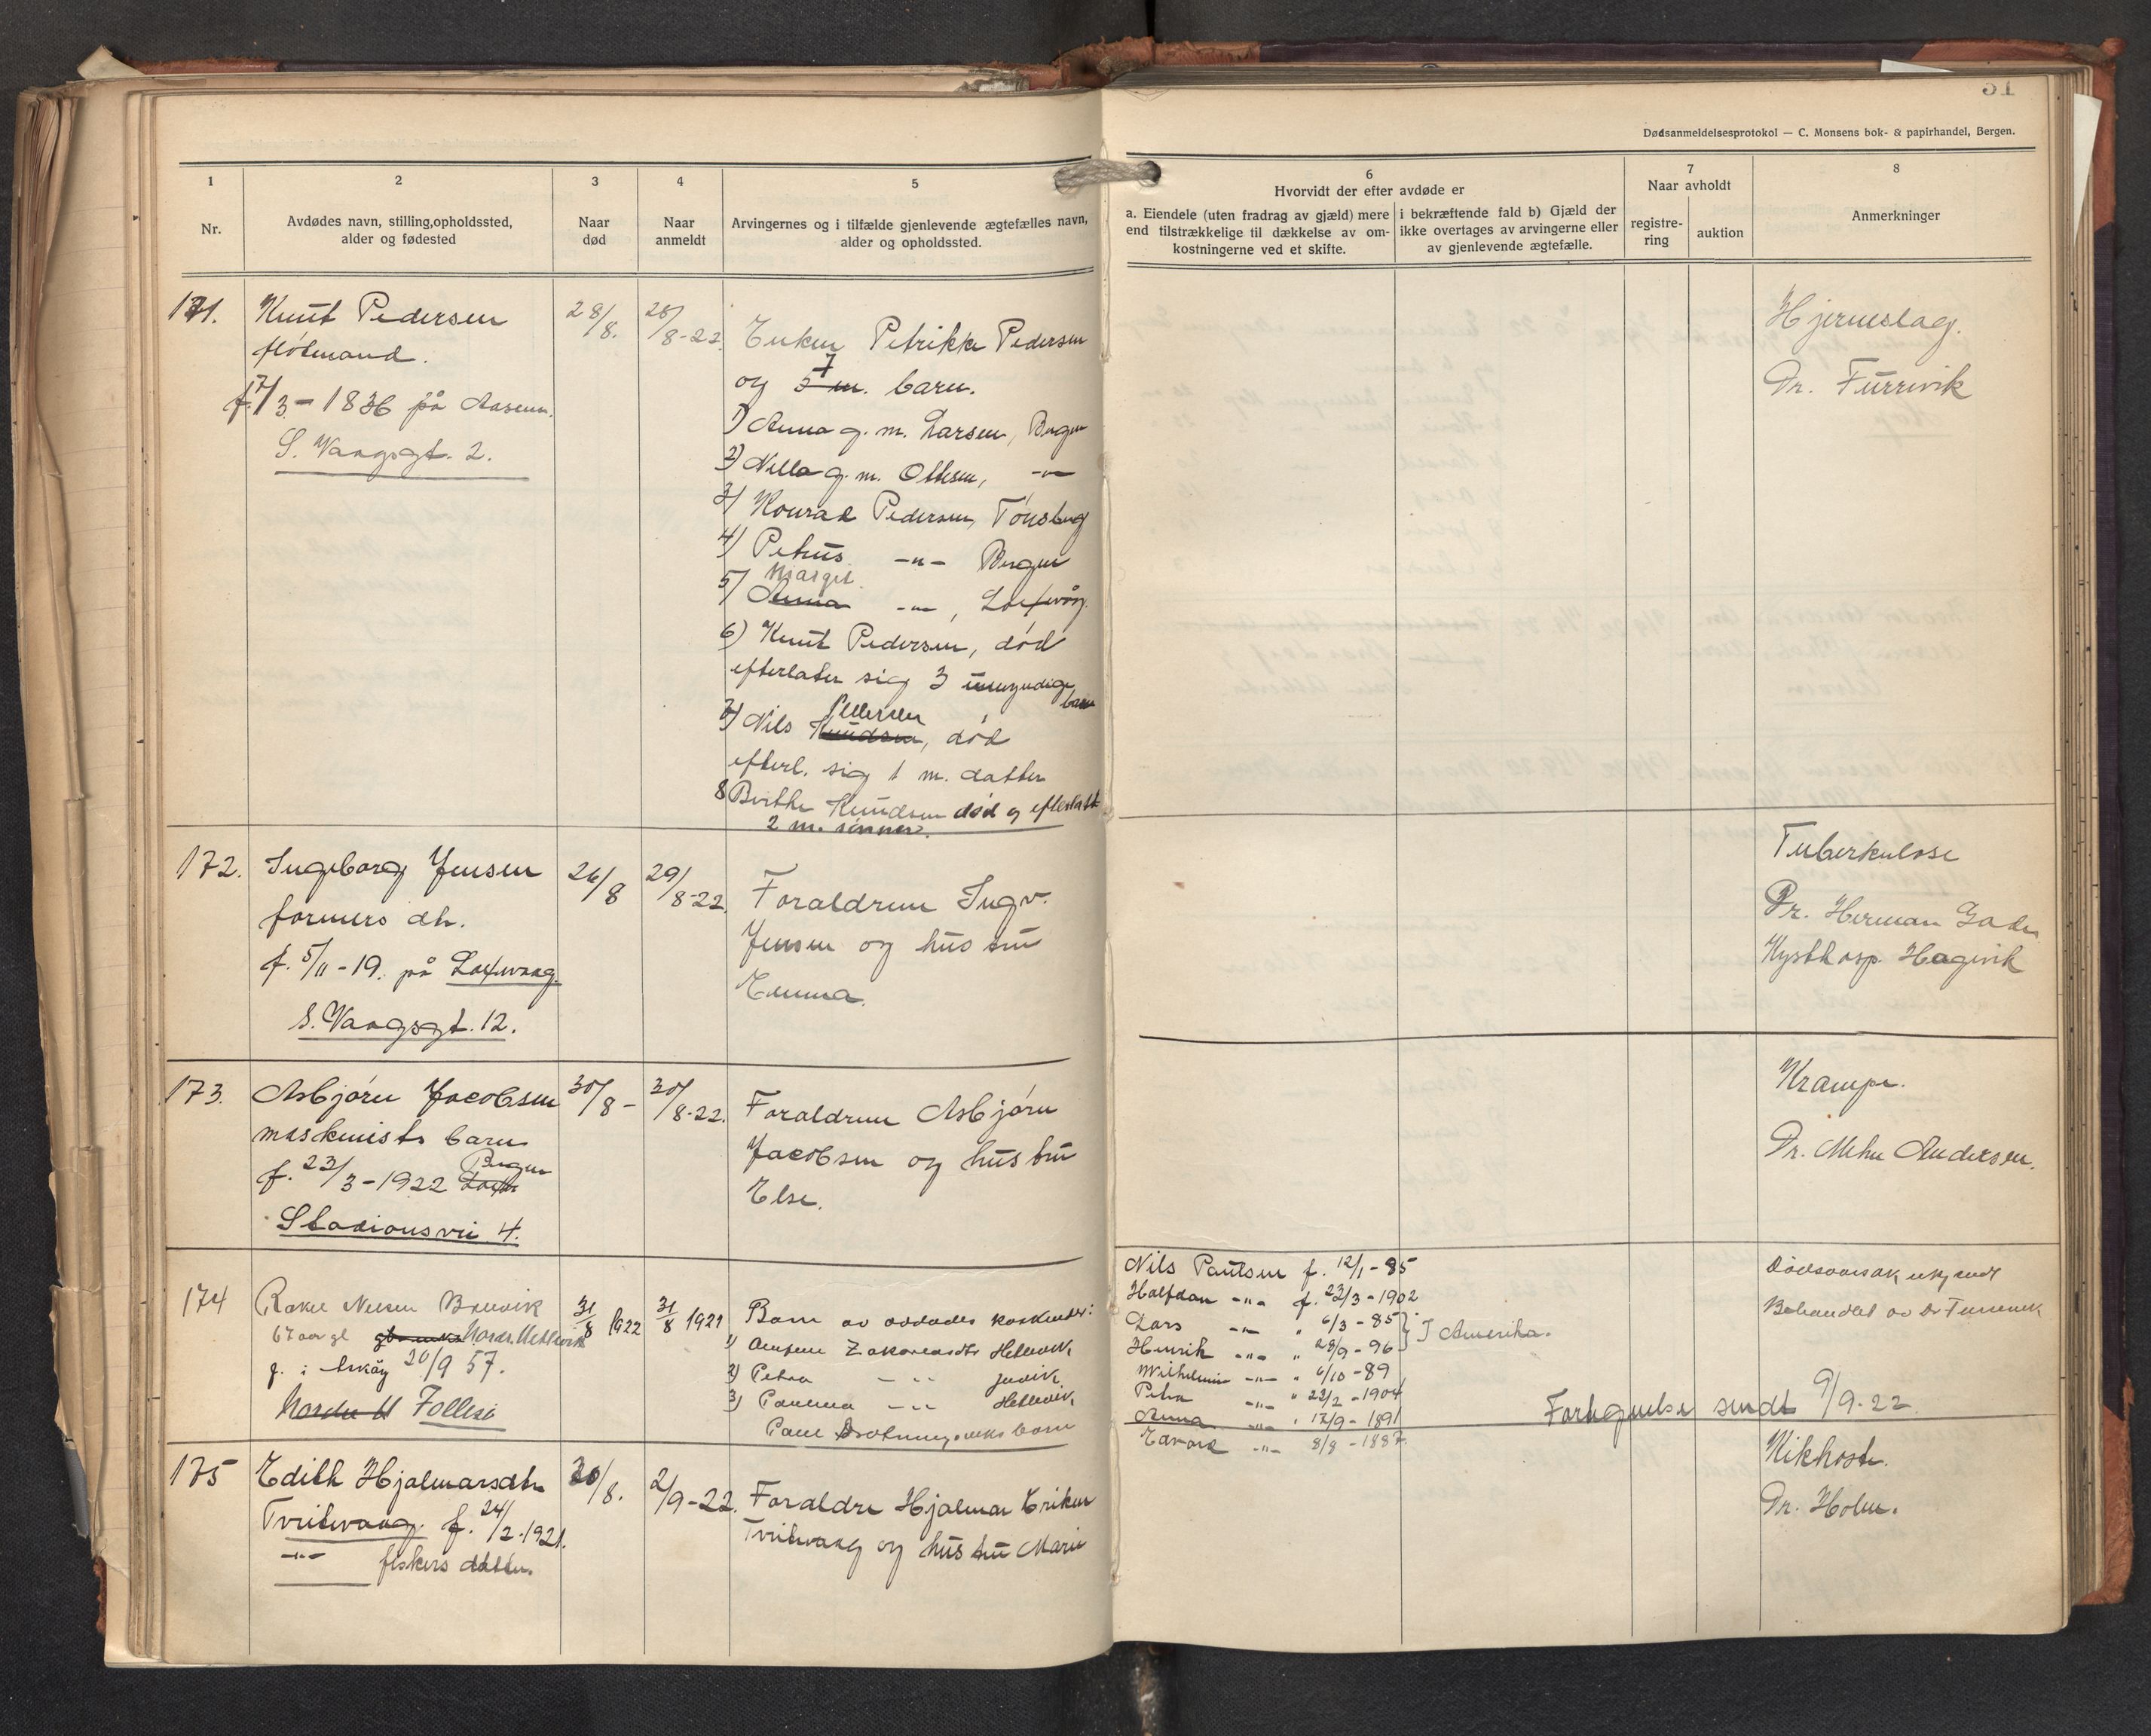 51
Dødsanmeldelsesprotokol — C. Monsens bok- & papirhandel, Bergen.
1
Nr.
2
Avdødes navn, stilling, opholdssted,
alder og fødested
3
Naar
død
4
Naar
anmeldt
5
Arvingernes og i tilfælde gjenlevende ægtefælles navn,
alder og opholdssted.
6
Hvorvidt der efter avdøde er
a. Eiendele (uten fradrag av gjæld) mere
end tilstrækkelige til dækkelse av om-
kostningerne ved et skifte.
i bekræftende fald b) Gjæld der
ikke overtages av arvingerne eller
av gjenlevende ægtefælle.
7
Naar avholdt
registre-
ring
auktion
8
Anmerkninger
171.
Knut Pedersen
fløtmand.
f. 17/3 - 1836 på Aasen.
S. Vaagsgt. 2.
28/8.
28/8-22.
Enken Petrikke Pedersen
og 7 barn.
1) Anna g. m. Larsen, Bergen
2) Nilla g. m. Ottesen, -"-
3) Konrad Pedersen, Tønsberg
4) Petrus -"- Bergen
5) Marget -"-, Laxevåg.
6) Knut Pedersen, død
efterlater sig 3 umyndige
barn
7) Nils Pedersen, død
efterl. sig 1 m. datter
8 Berthe Knudsen død og efterlatt
2 m. sønner.
Hjerneslag.
Dr. Furrevik
172.
Ingeborg Jensen
formers dtr.
f. 5/11-19. på Laxevaag.
S. Vaagsgt. 12.
26/8
29/8-22.
Foraldrene Ingv.
Jensen og hustru
Emma.
Tuberkulose
Dr. Herman Gade
Kysthosp. Hagevik
173.
Asbjørn Jacobsen
maskinists barn
Bergen
f. 23/3-1922
Stadionsvei 4.
30/8-
30/8-22.
Foraldrene Asbjørn
Jacobsen og hustru
Else.
Krampe.
Dr. Mehn Andersen.
174
Rakel Nilsen Brevik
67 aar gl
f. i Askøy 20/9 57.
Follesø
31/8 1922
31/8 1921
Barn av avdødes søskender:
2) Petra -"-
3) -"- Hetlevik
barn
Nils Paulsen f. 12/1-85
Halfdan -"- f. 23/3-1902
Lars -"- " 6/3-85
Henrik -"- " 28/9-96
I Amerika.
Wilhelmine -"- " 6/10-89
Petra -"- " 22/2-1904
Anna -"- " 12/9-1891
Edvard -"- 8/8-1887.
Dødsaarsak ukjendt
Behandlet av Dr Furrevik
Fortegnelse sendt 9/9-22.
175
Edith Hjalmarsdtr
Tveitevaag. f. 24/2-1921.
-"- fiskers datter.
30/8.
2/9-22.
Foraldre Hjalmar Eriksen
Tveitevaag og hustru Marie
Kikhoste.
Dr. Holm.